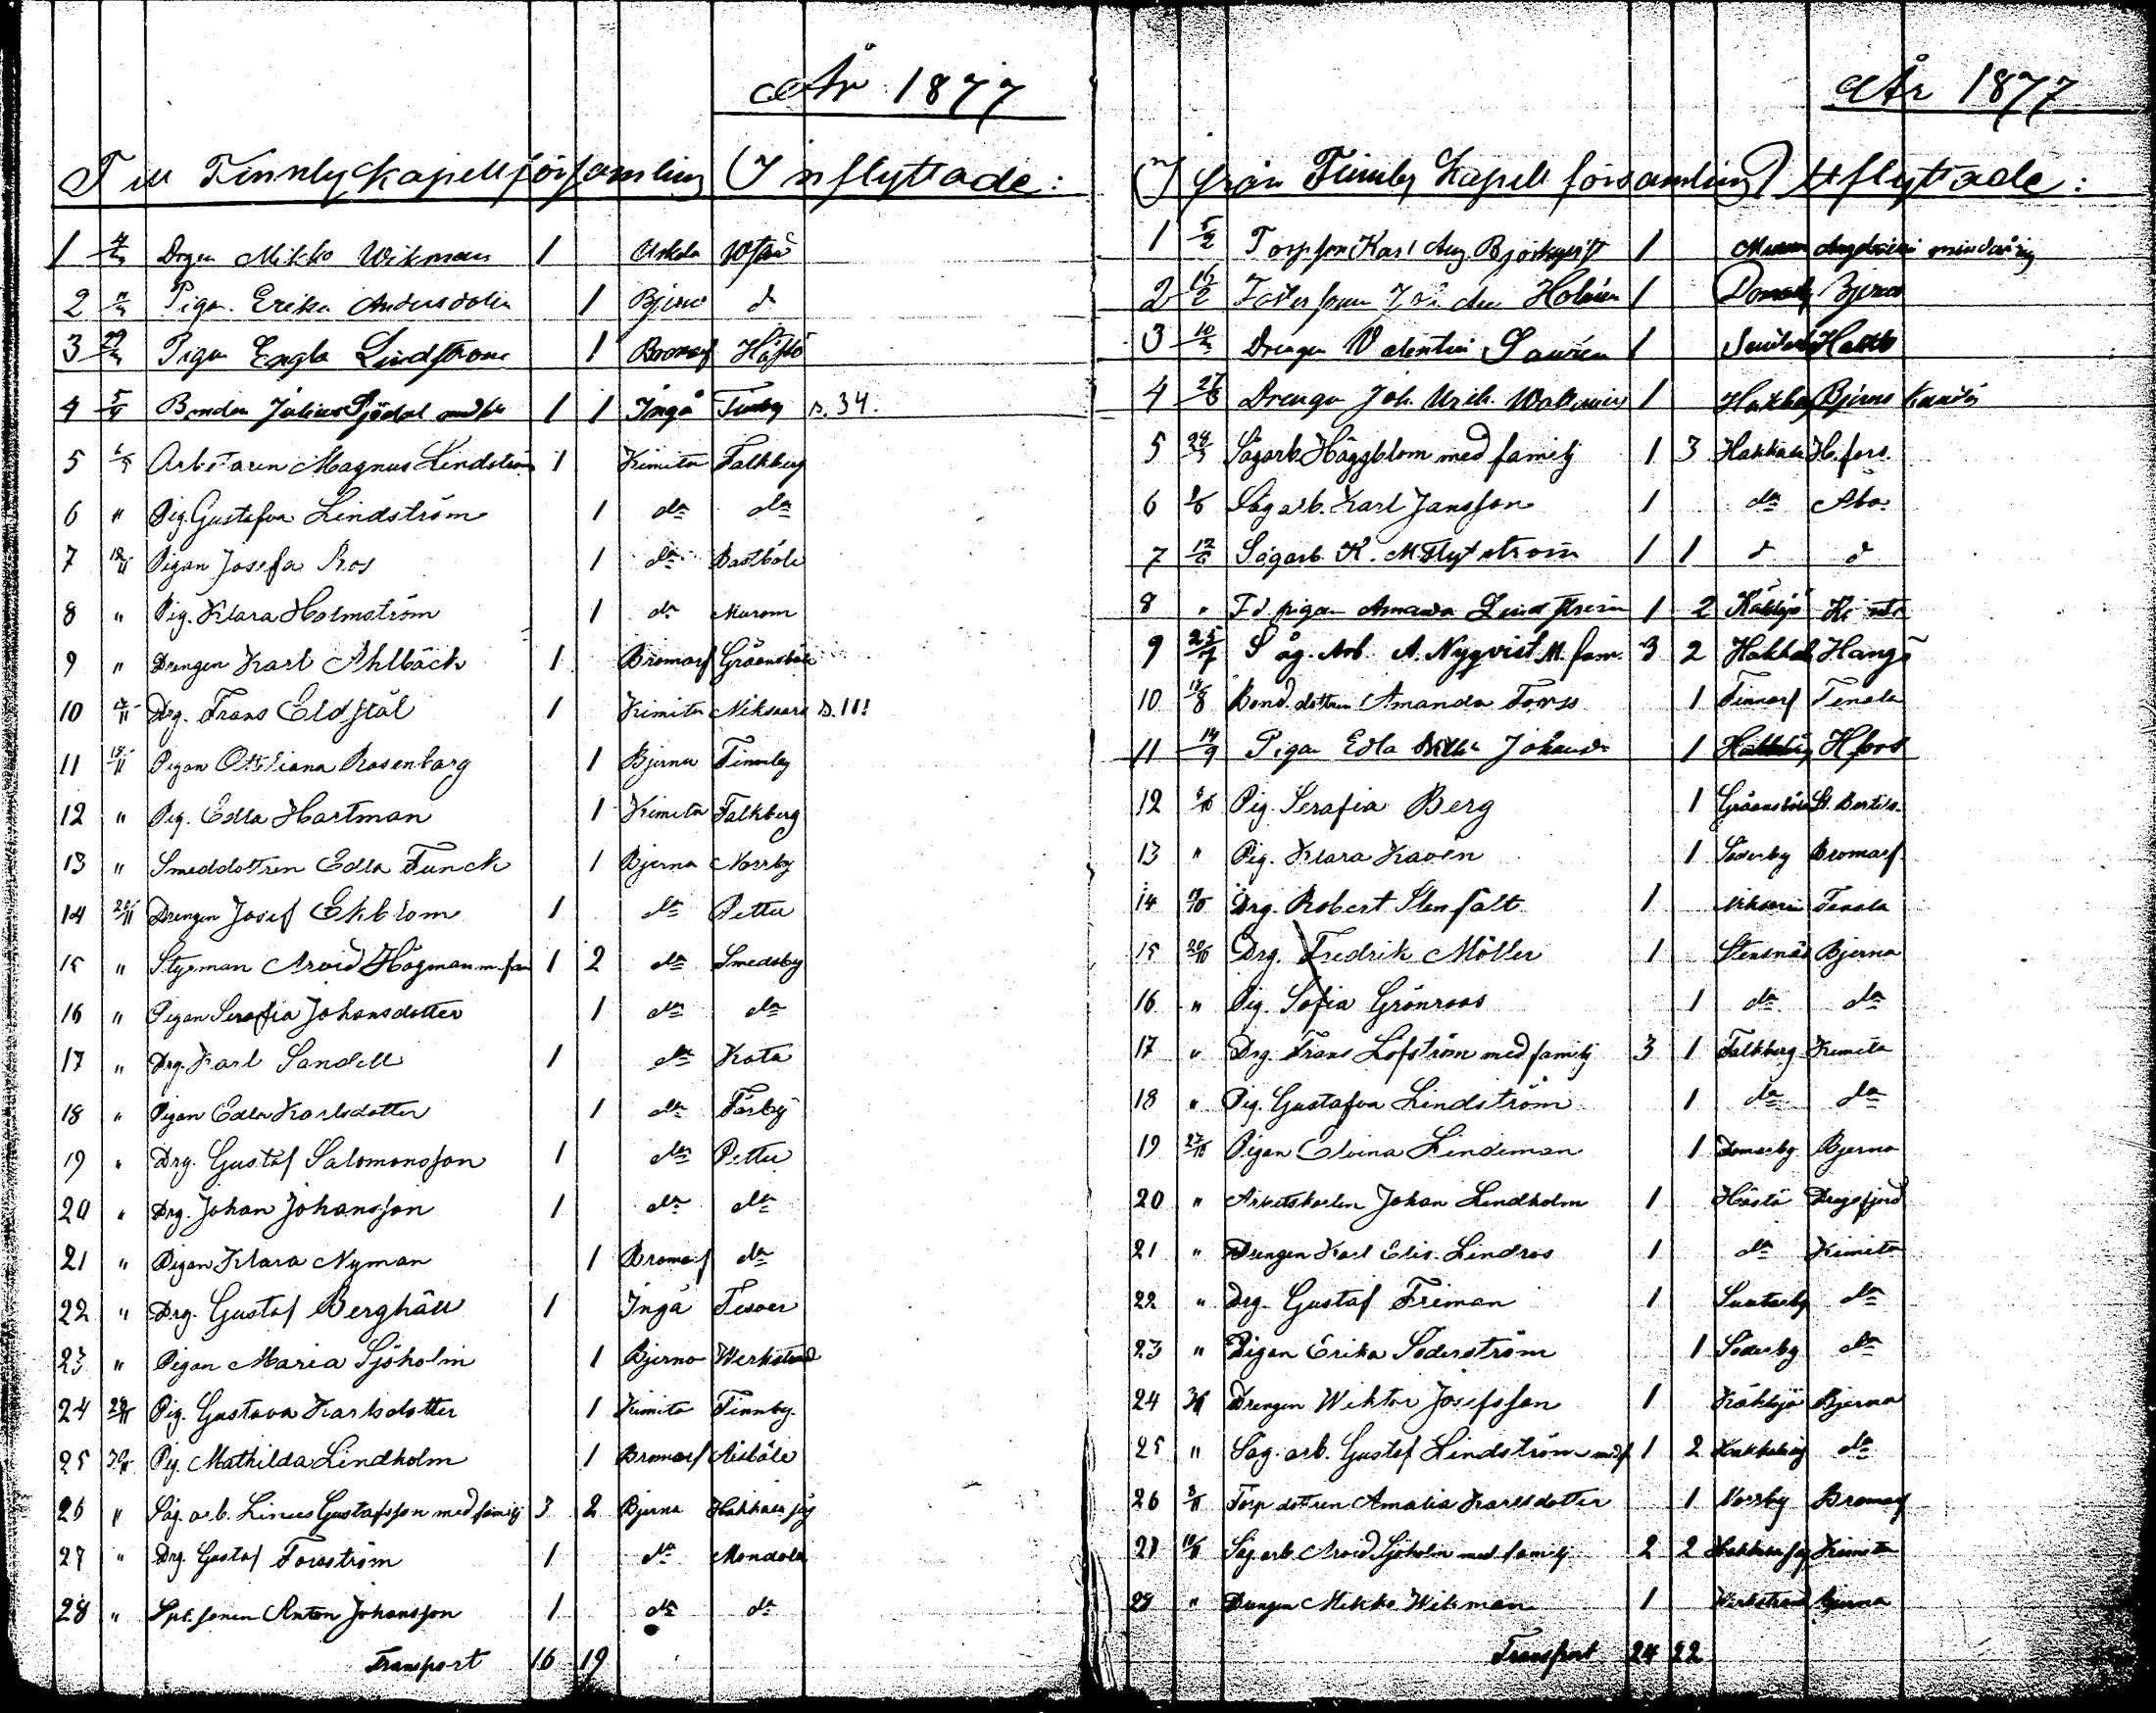 År 1877
Till Finnby Kapellförsamling Inflyttade:
1 Drgen Mikko Wikman 1 Uskela
2 Pigan Erika Andersdotter 1 Bjerno do
3 29 Pigan Engla Lindström 1 Bromarf Håstö
4 5/4 Bonden Julius Sjödal 1 1 Ingå Finnby s. 34.
5 Arbetaren Magnus Lindström 1 Kimito Falkberg
6 " Pig. Gustafva Lindström 1 do do
7 Pigan Josefa Ros 1 do Bastböle
8 " Pig. Klara Holmström 1 do Murom
9 " Drengen Karl Ahlbäck 1 Bromarf Gråänsböle
10 Drg. Frans Eldstål 1 Kimito Niksaari s. 111
11 Pigan Ottiliana Rosenberg 1 Bjerno Finnby
12 " Pig. Edla Hartman 1 Kimito Falkberg
13 " Smeddottren Edla Funck 1 Bjerna Norrby
14 Drengen Josef Ekblom 1 do Pettu
15 " Styrman Arvid Högman m. fam 1 2 do Smedsby
16 " Pigan Serafia Johansdotter 1 do do
17 " Drg. Karl Sandell 1 do Kota
18 " Pigan Edla Karlsdotter 1 do Förby
19 " Drg. Gustaf Salomonsson 1 do Pettu
20 " Drg. Johan Johansson 1 do do
21 " Pigan Klara Nyman 1 Bromarf do
22 " Drg. Gustaf Berghäll 1 Ingå Tesver
23 " Pigan Maria Sjöholm 1 Bjerno Werkstrand
24 Pig. Gustava Karlsdotter 1 Kimito Finnby
25 Pig. Mathilda Lindholm 1 Bromarf Aisböle
26 " Såg. arb. Linus Gustafsson med familj 3 2 Bjerna Hakkala såg
27 " Drg. Gustaf Forsström 1 do Mondola
28 " Spt. sonen Anton Johansson 1 do do
Transport 16 19
År 1877
från Finnby Kapell församling Utflyttade:
1 5/2 Torp. son Karl Aug. Björkqvist 1
2 16/2 Holmén 1 Bjerno
3 Drengen Valentin Laurén 1
4 Drengen Joh. Wallenius 1 Bjerno
5 Sågarb. Häggblom med familj 1 3 Hakkala H.fors.
6 Sågarb. Karl Jansson 1 do Åbo
7 Sågarb. K. M. Flytström 1 1 d d
8 " F.d. pigan Amanda Lindström 1 2
9 25/7 Såg. Arb. A. Nyqvist M. fam. 3 2 Hakkala Hangö
10 Bond dottern Amanda Forss 1 Finnarf Tenala
11 14/9 Pigan Edla 1 H.fors
12 Pig. Serafia Berg 1 Gråänsböle St. Bertils.
13 " Pig. Klara Kavén 1 Söderby Bromarf
14 Drg. Robert Stenfält 1 Niksaari Tenala
15 20/10 Drg. Fredrik Möller 1 Stensnäs Bjerna
16 " Pig. Sofia Grönroos 1 do do
17 " Drg. Frans Löfström med familj 3 1 Falkberg Kimito
18 " Pig. Gustafva Lindström 1 do do
19 27/10 Pigan Elvina Lindeman 1 Domarby Bjerno
20 " Arbetskarlen Johan Lindholm 1 Håstö Dragsfjerd
21 " Drengen Karl Elis Lindros 1 do Kimito
22 " Drg. Gustaf Friman 1 do
23 " Pigan Erika Söderström 1 Söderby do
24 Drengen Wiktor Josefsson 1 Bjerna
25 " Såg. arb. Gustaf Lindström med f. 1 2 do
26 Torp dottren Amalia Karlsdotter 1 Norrby Bromarf
27 Såg. arb. Arvid Sjöholm med familj 2 2 Hakkala såg Kimito
28 " Drengen Mikko Wikman 1 Werkstrand Bjerna
Transport 24 22